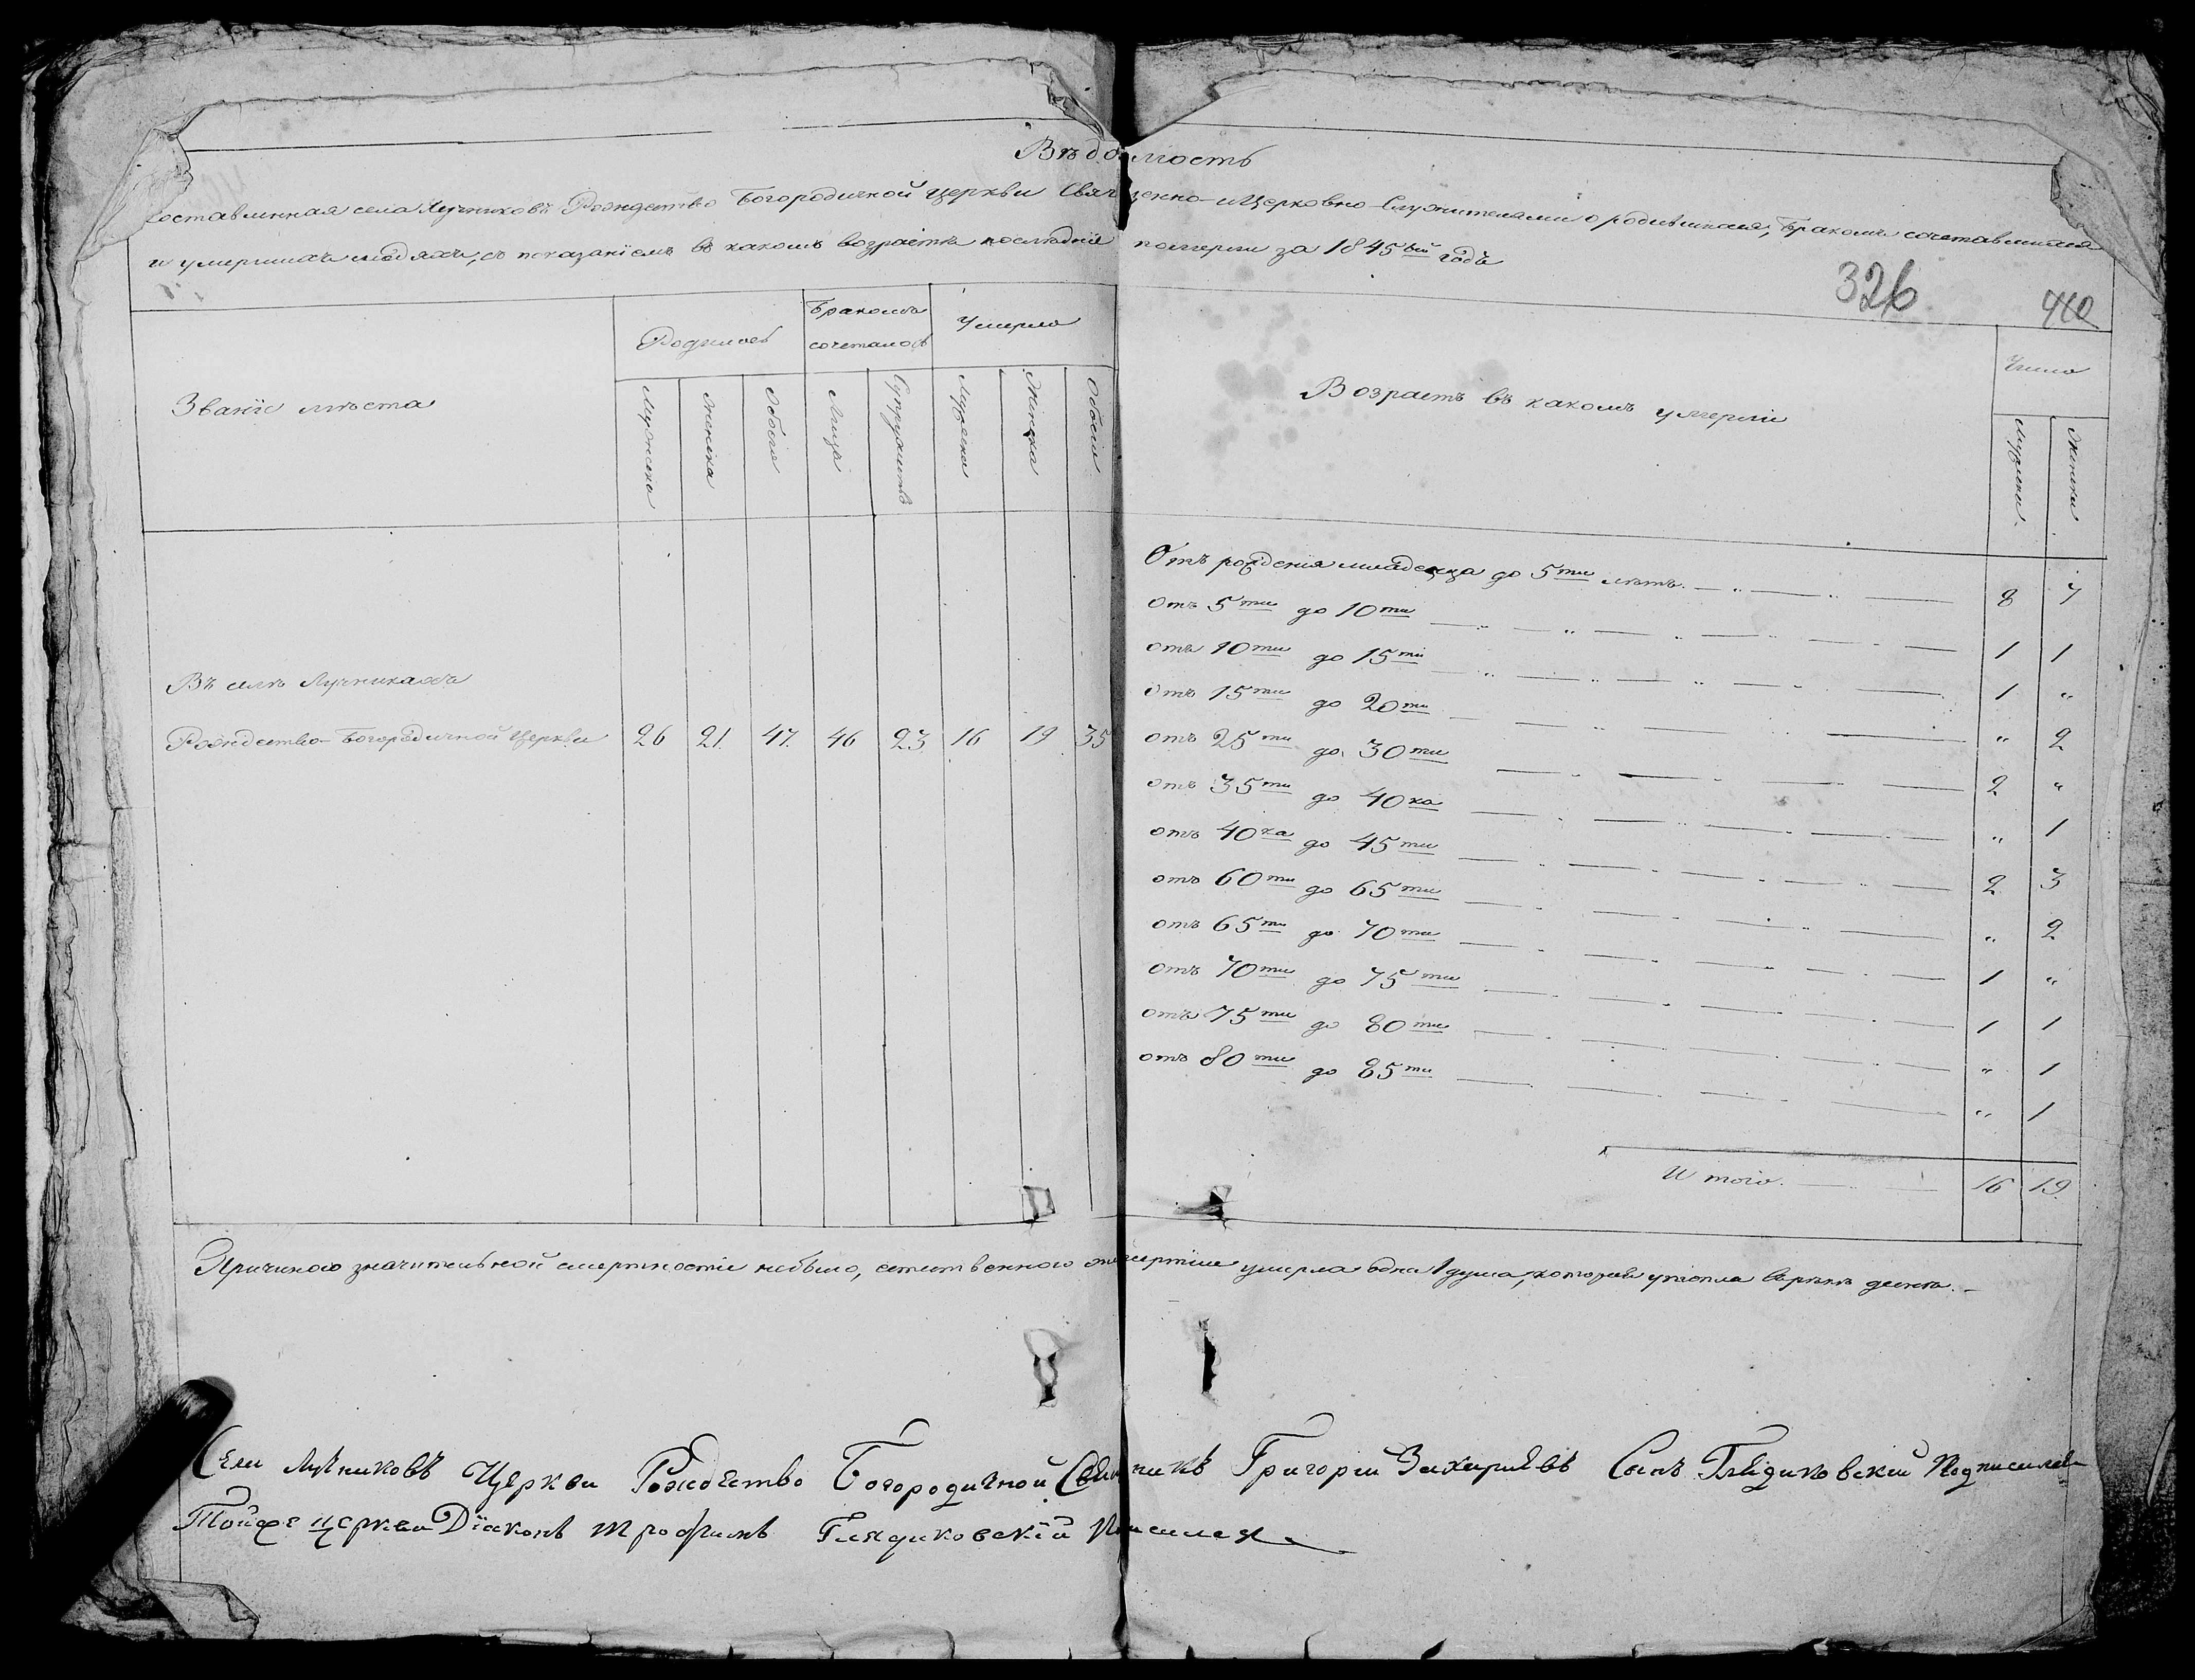 Вѣдомость
Составленная села Лучниковъ Рождество Богородичной Церкви Священно- и Церковно-Служителями о родившихся, бракомъ сочетавшихся
и умершихъ людяхъ, съ показаніемъ въ какомъ возрастѣ послѣдніе померли за 1845ый годъ
326
410
Званіе мѣста
Родилось
Бракомъ сочеталось
Умерло
Мужеска
Женска
Обоего
Лицъ
Супружествъ
Мужеска
Женска
Обоего
Возрастъ въ какомъ умерли
Число
Мужески
Женски
Отъ рожденія младенца до 5ти лѣтъ. 8 7
отъ 5ти до 10ти 1 1
отъ 10ти до 15ти 1 "
отъ 15ти до 20ти " 2
отъ 25ти до 30ти 2 "
отъ 35ти до 40ка " 1
отъ 40ка до 45ти 2 3
отъ 60ти до 65ти " 2
отъ 65ти до 70ти 1 "
отъ 70ти до 75ти 1 1
отъ 75ти до 80ти " 1
отъ 80ти до 85ти " 1
Итого. 16 19
Въ селѣ Лучникахъ
Рождество-Богородичной Церкви 26 21 47 46 23 16 19 35
Причиною значительной смертности небыло, естественного смертію умерла одна 1 душа, которая утопла въ рѣкѣ
Села Лучниковъ Церкви Рождество Богородичной Священникъ Григорій Захаріевъ Сынъ Гляδиковскій Подписался
Тойже церкви Діаконъ Трофимъ Глядиковскій Подписался